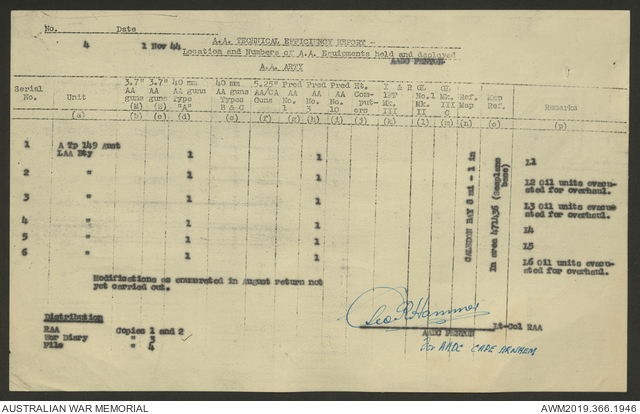 No. Date
4 1 Nov 44
A.A. TECHNICAL EFFICIENCY REPORT -
Location and Numbers of A.A. Equipments held and deployed
AADC FENTON
A.A. ARTY
Serial No. Unit 3.7" AA guns (M) 3.7" AA guns (S) 40 mm AA guns Type "A" 40 mm AA guns Types B & G 5.25" AA/CA Guns Pred AA No. 1 Pred AA No. 3 Pred AA No. 10 Ht. Computers X & B IFF Mk. III GL No.1 Mk. II GL Mk. III C Ref. Map Map Ref. Remarks
(a) (b) (c) (d) (e) (f) (g) (h) (i) (j) (k) (l) (m) (n) (o) (p)
1 A Tp 149 Aust LAA Bty 1 1 L1
2 " 1 1 L2 Oil units evacuated for overhaul.
3 " 1 1 L3 Oil units evacuated for overhaul.
4 " 1 1 L4
5 " 1 1 L5
6 " 1 1 L6 Oil units evacuated for overhaul.
CALEDON BAY 8 mi - 1 in
In area 471436 (Seaplane base)
Modifications as enumerated in August return not
yet carried out.
Distribution
RAA Copies 1 and 2
War Diary " 3
File " 4
Geo R Hammer
Lt-Col RAA
AADC FENTON
for AADC CAPE ARNHEM
AUSTRALIAN WAR MEMORIAL AWM2019.366.1946